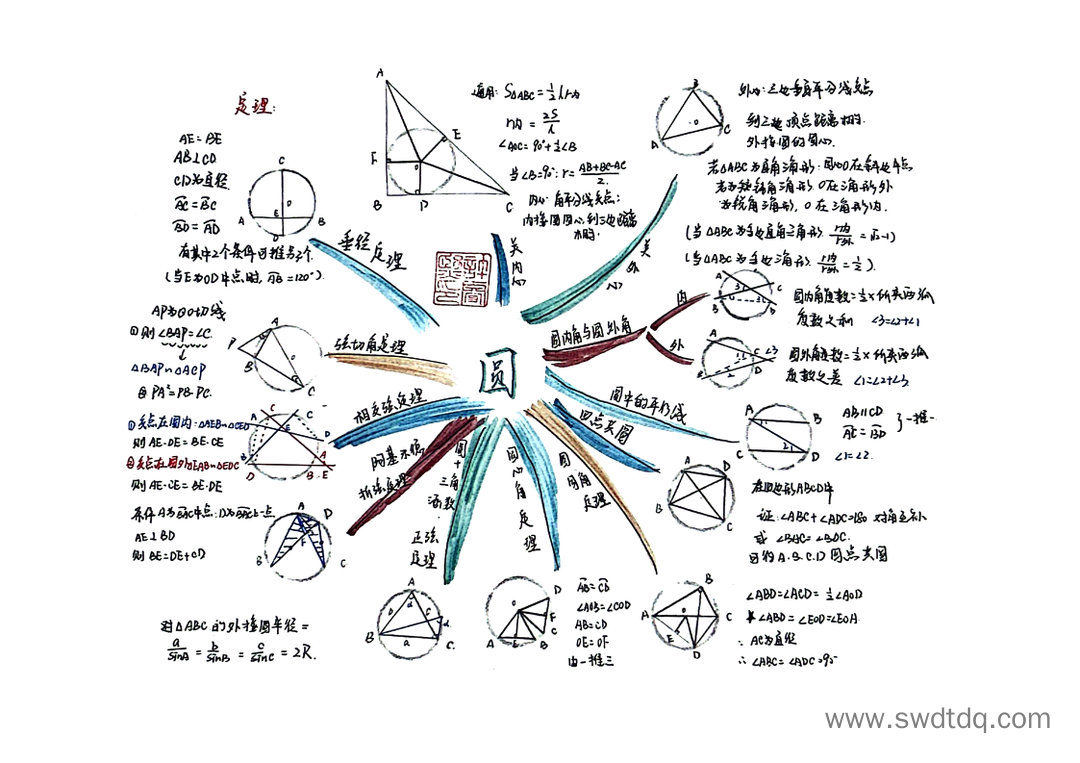 定理:
AE=BE
AB⊥CD
CD为直径
BC=BC
BD=AD
有其中2个条件可推另3个
(当E为OD中点时, AB=120°).
垂径定理
通用: S△ABC=½lr内
r内=2S/l
∠AOC=90°+½∠B
当∠B=90°: r=(AB+BC-AC)/2.
内心: 角平分线交点:
内接圆圆心到三边距离
相等.
关内心
外心: 三边垂直平分线交点
到三边顶点距离相等.
外接圆的圆心.
若△ABC为直角三角形: 圆心O在斜边中点
若为钝角三角形. O在三角形外
为锐角三角形, O在三角形内.
(当△ABC为等边直角三角形. r内/r外=√2-1)
(当△ABC为等边三角形. r内/r外=½).
关外心
圆
圆内角与圆外角
内
圆内角度数=½×所夹两弧
度数之和 ∠3=∠2+∠1
外
圆外角度数=½×所夹两弧
度数之差 ∠1=∠2+∠3
圆中的平行线
AB∥CD
AC=BD
一推一
∠1=∠2.
四点共圆
在四边形ABCD中
证: ∠ABC+∠ADC=180 对角互补
或 ∠BAC=∠BDC.
可得A.B.C.D四点共圆
圆周角定理
∠ABD=∠ACD=½∠AOD
∠ABD=∠EOD=∠EOA
∵AC为直径
∴∠ABC=∠ADC=90°
圆心角定理
AB=CD
∠AOB=∠COD
AB=CD
OE=OF
由一推三
圆+三角函数
正弦定理
对△ABC的外接圆半径=
a/sinA=b/sinB=c/sinC=2R.
阿基米德
折弦定理
条件A为BAC中点: D为BAC上一点
AE⊥BD
则BE=DE+CD
相交弦定理
①交点在圆内: △AEB∽△CED
则AE·DE=BE·CE
②交点在圆外△EAB∽△EDC
则AE·CE=BE·DE
弦切角定理
AP为⊙O切线
①则∠BAP=∠C.
△BAP∽△ACP
②PA²=PB·PC.
www.swdtdq.com